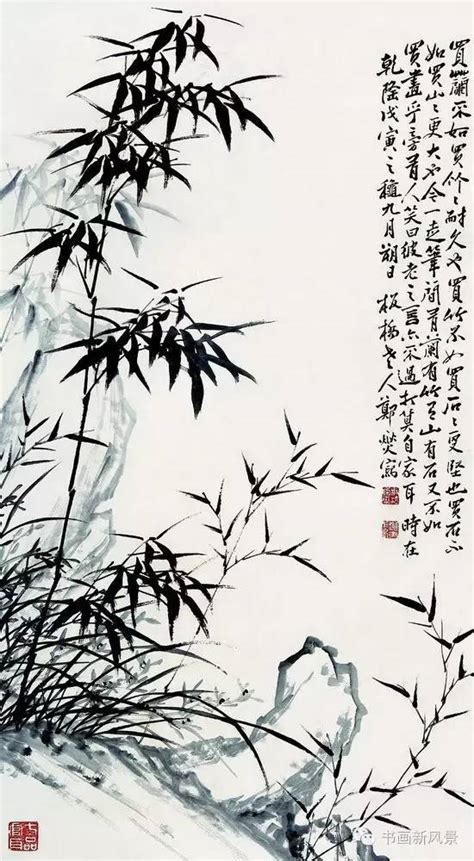 買蘭不如買竹之耐久也買竹不如買石之更堅也買石不
如買山之更大也今一走筆間有蘭有竹有山有石又不如
買畫乎旁有人笑曰彼老之言亦不過打算自家耳時在
乾隆戊寅之穐九月朔日板橋老人鄭燮寫
七品官耳
书画新风景